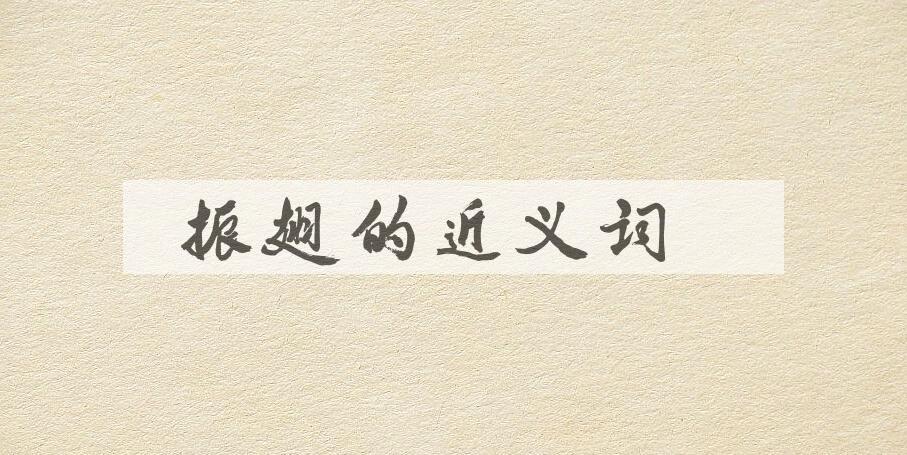 振翅的近义词